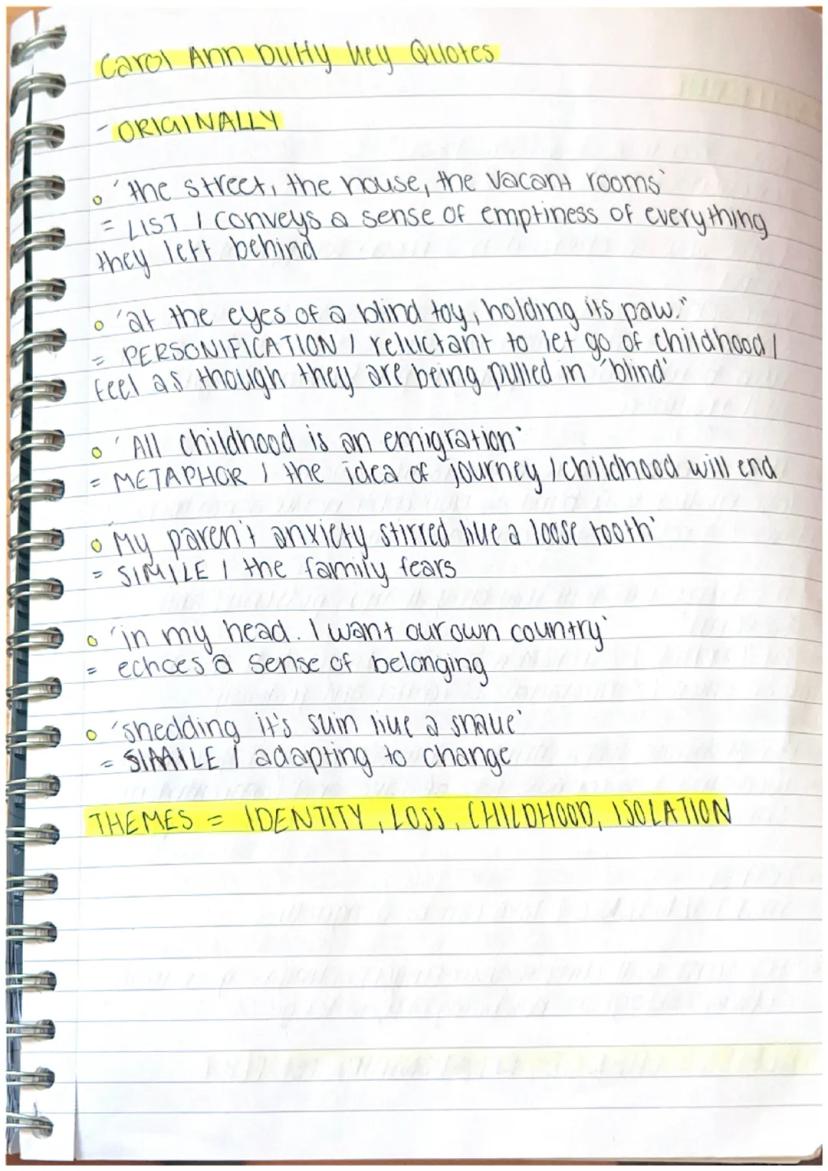 Carol Ann Duffy key Quotes
- ORIGINALLY
'the street, the house, the vacant rooms'
= LIST / conveys a sense of emptiness of everything
they left behind
'at the eyes of a blind toy, holding its paw.'
= PERSONIFICATION / reluctant to let go of childhood /
feel as though they are being pulled in 'blind'
'All childhood is an emigration'
= METAPHOR / the idea of journey / childhood will end
'My paren't anxiety stirred like a loose tooth'
= SIMILE / the family fears
'in my head. I want our own country'
= echoes a sense of belonging
'shedding it's skin like a snake'
= SIMILE / adapting to change
THEMES = IDENTITY, LOSS, CHILDHOOD, ISOLATION